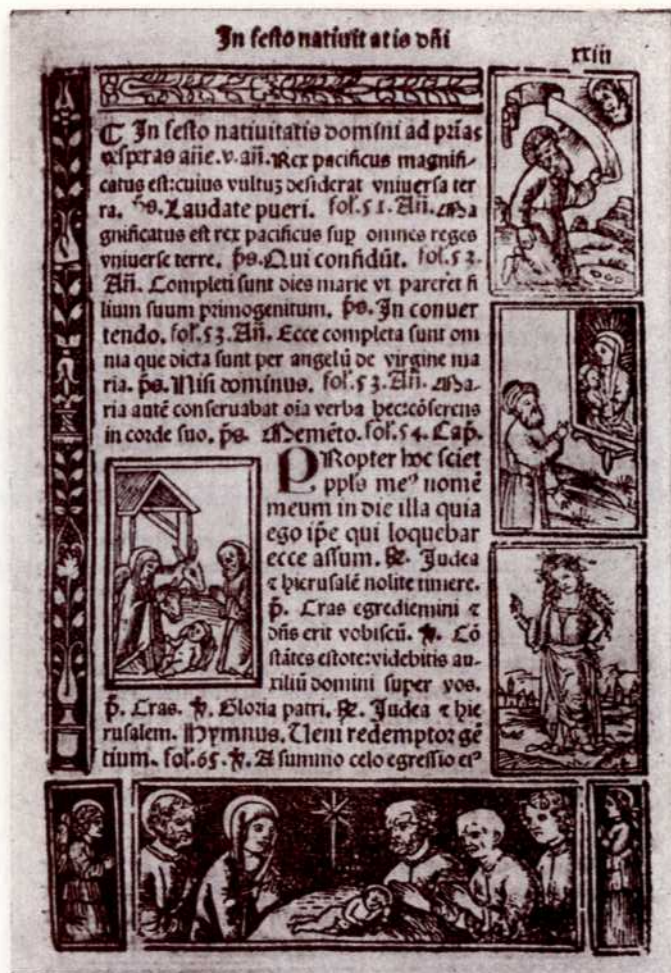 In festo natiuitatis dñi
xxiii
In festo natiuitatis domini ad prīas
vesperas añe. v. añ. Rex pacificus magnifi-
catus est: cuius vultuz desiderat vniuersa ter
ra. ps. Laudate pueri. fol. 51. Añ. Ma
gnificatus est rex pacificus sup omnes reges
vniuerse terre. ps. Qui confidūt. fol. 52.
Añ. Completi sunt dies marie vt pareret fi
lium suum primogenitum. ps. In conuer
tendo. fol. 53. Añ. Ecce completa sunt om
nia que dicta sunt per angelū de virgine ma
ria. ps. Nisi dominus. fol. 53. Añ. Ma-
ria autē conseruabat oīa verba hec: cōferens
in corde suo. ps. Memēto. fol. 54. Cap.
PRopter hoc sciet
ppls meꝰ nomē
meum in die illa quia
ego ipe qui loquebar
ecce assum. ℞. Judea
⁊ hierusalē nolite timere.
p. Cras egrediemini ⁊
dñs erit vobiscū. ℣. Cō
stātes estote: videbitis au-
xiliū domini super vos.
p. Cras. ℣. Gloria patri. ℞. Judea ⁊ hie
rusalem. Hymnus. Ueni redemptor gē
tium. fol. 65. ℣. A summo celo egressio eiꝰ